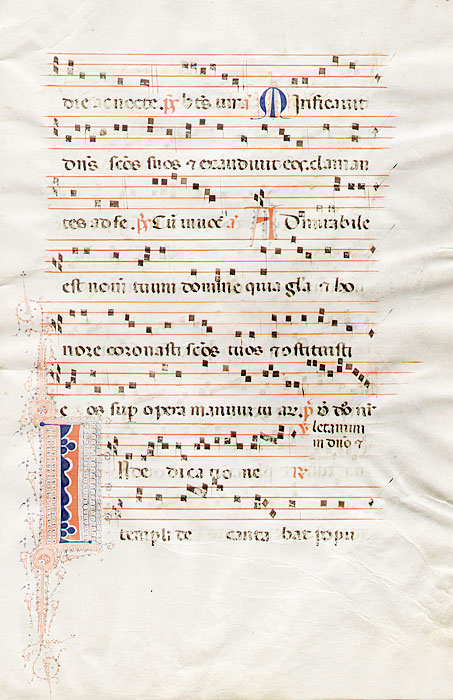 die ac nocte. ps bts uir a Mirificauit
dns scos suos et exaudiuit eos claman
tes ad se. ps Cu inuoc a Admirabile
est nom tuum domine quia gla et ho
nore coronasti scos tuos et ostituisti
e os sup opera manuum tuar. ps dns nr
letamini
in dno et
In de di ca tio ne
templi de canta bat popu